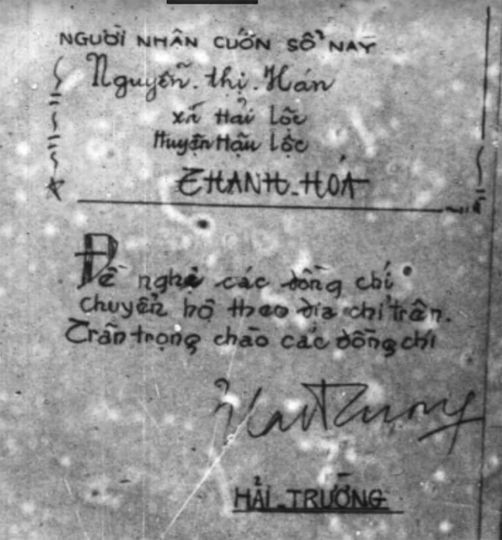 NGƯỜI NHẬN CUỐN SỔ NÀY
Nguyễn. thị. Hán
xã Hải lộc
Huyện Hậu lộc
THANH-HÓA
Đề nghị các đồng chí
chuyển hộ theo địa chỉ trên.
Trân trọng chào các đồng chí
HẢI-TRƯỜNG